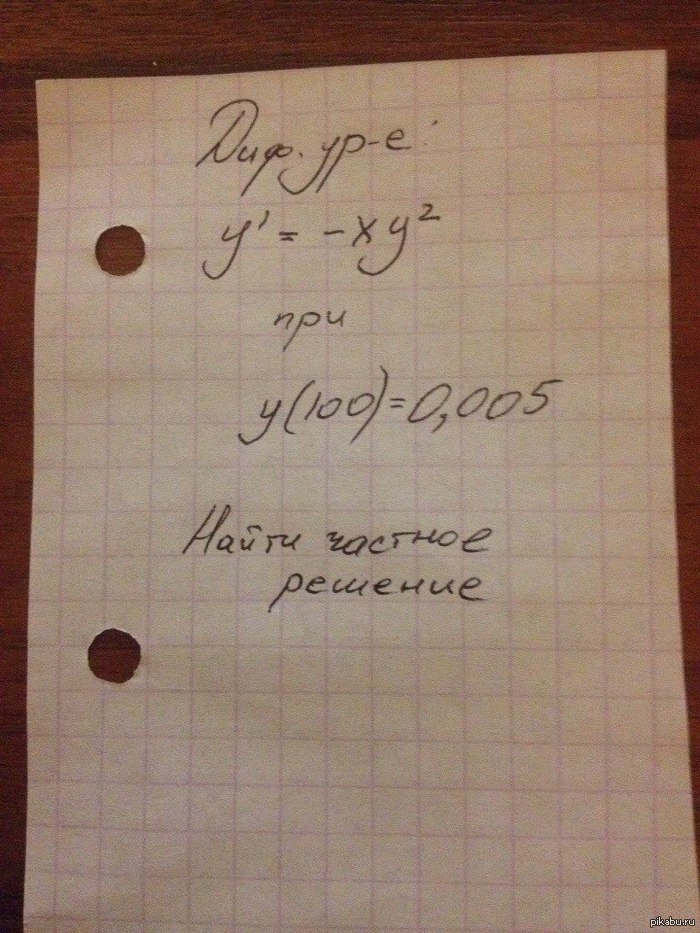 Диф. ур-е:
y' = -xy²
при
y(100)=0,005
Найти частное
решение
pikabu.ru